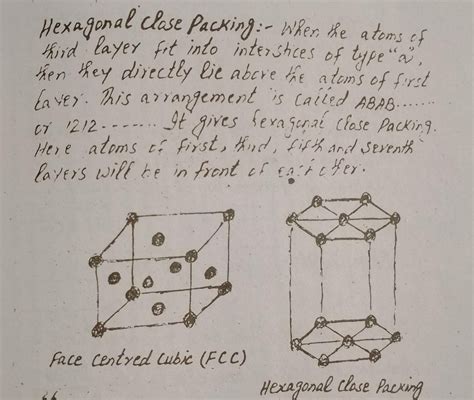 Hexagonal Close Packing:- When the atoms of
third layer fit into interstices of type "a",
then they directly lie above the atoms of first
Layer. This arrangement is called ABAB......
or 1212....... It gives hexagonal close Packing.
Here atoms of first, third, fifth and seventh
layers will be in front of each other.
Face Centred Cubic (FCC)
Hexagonal Close Packing